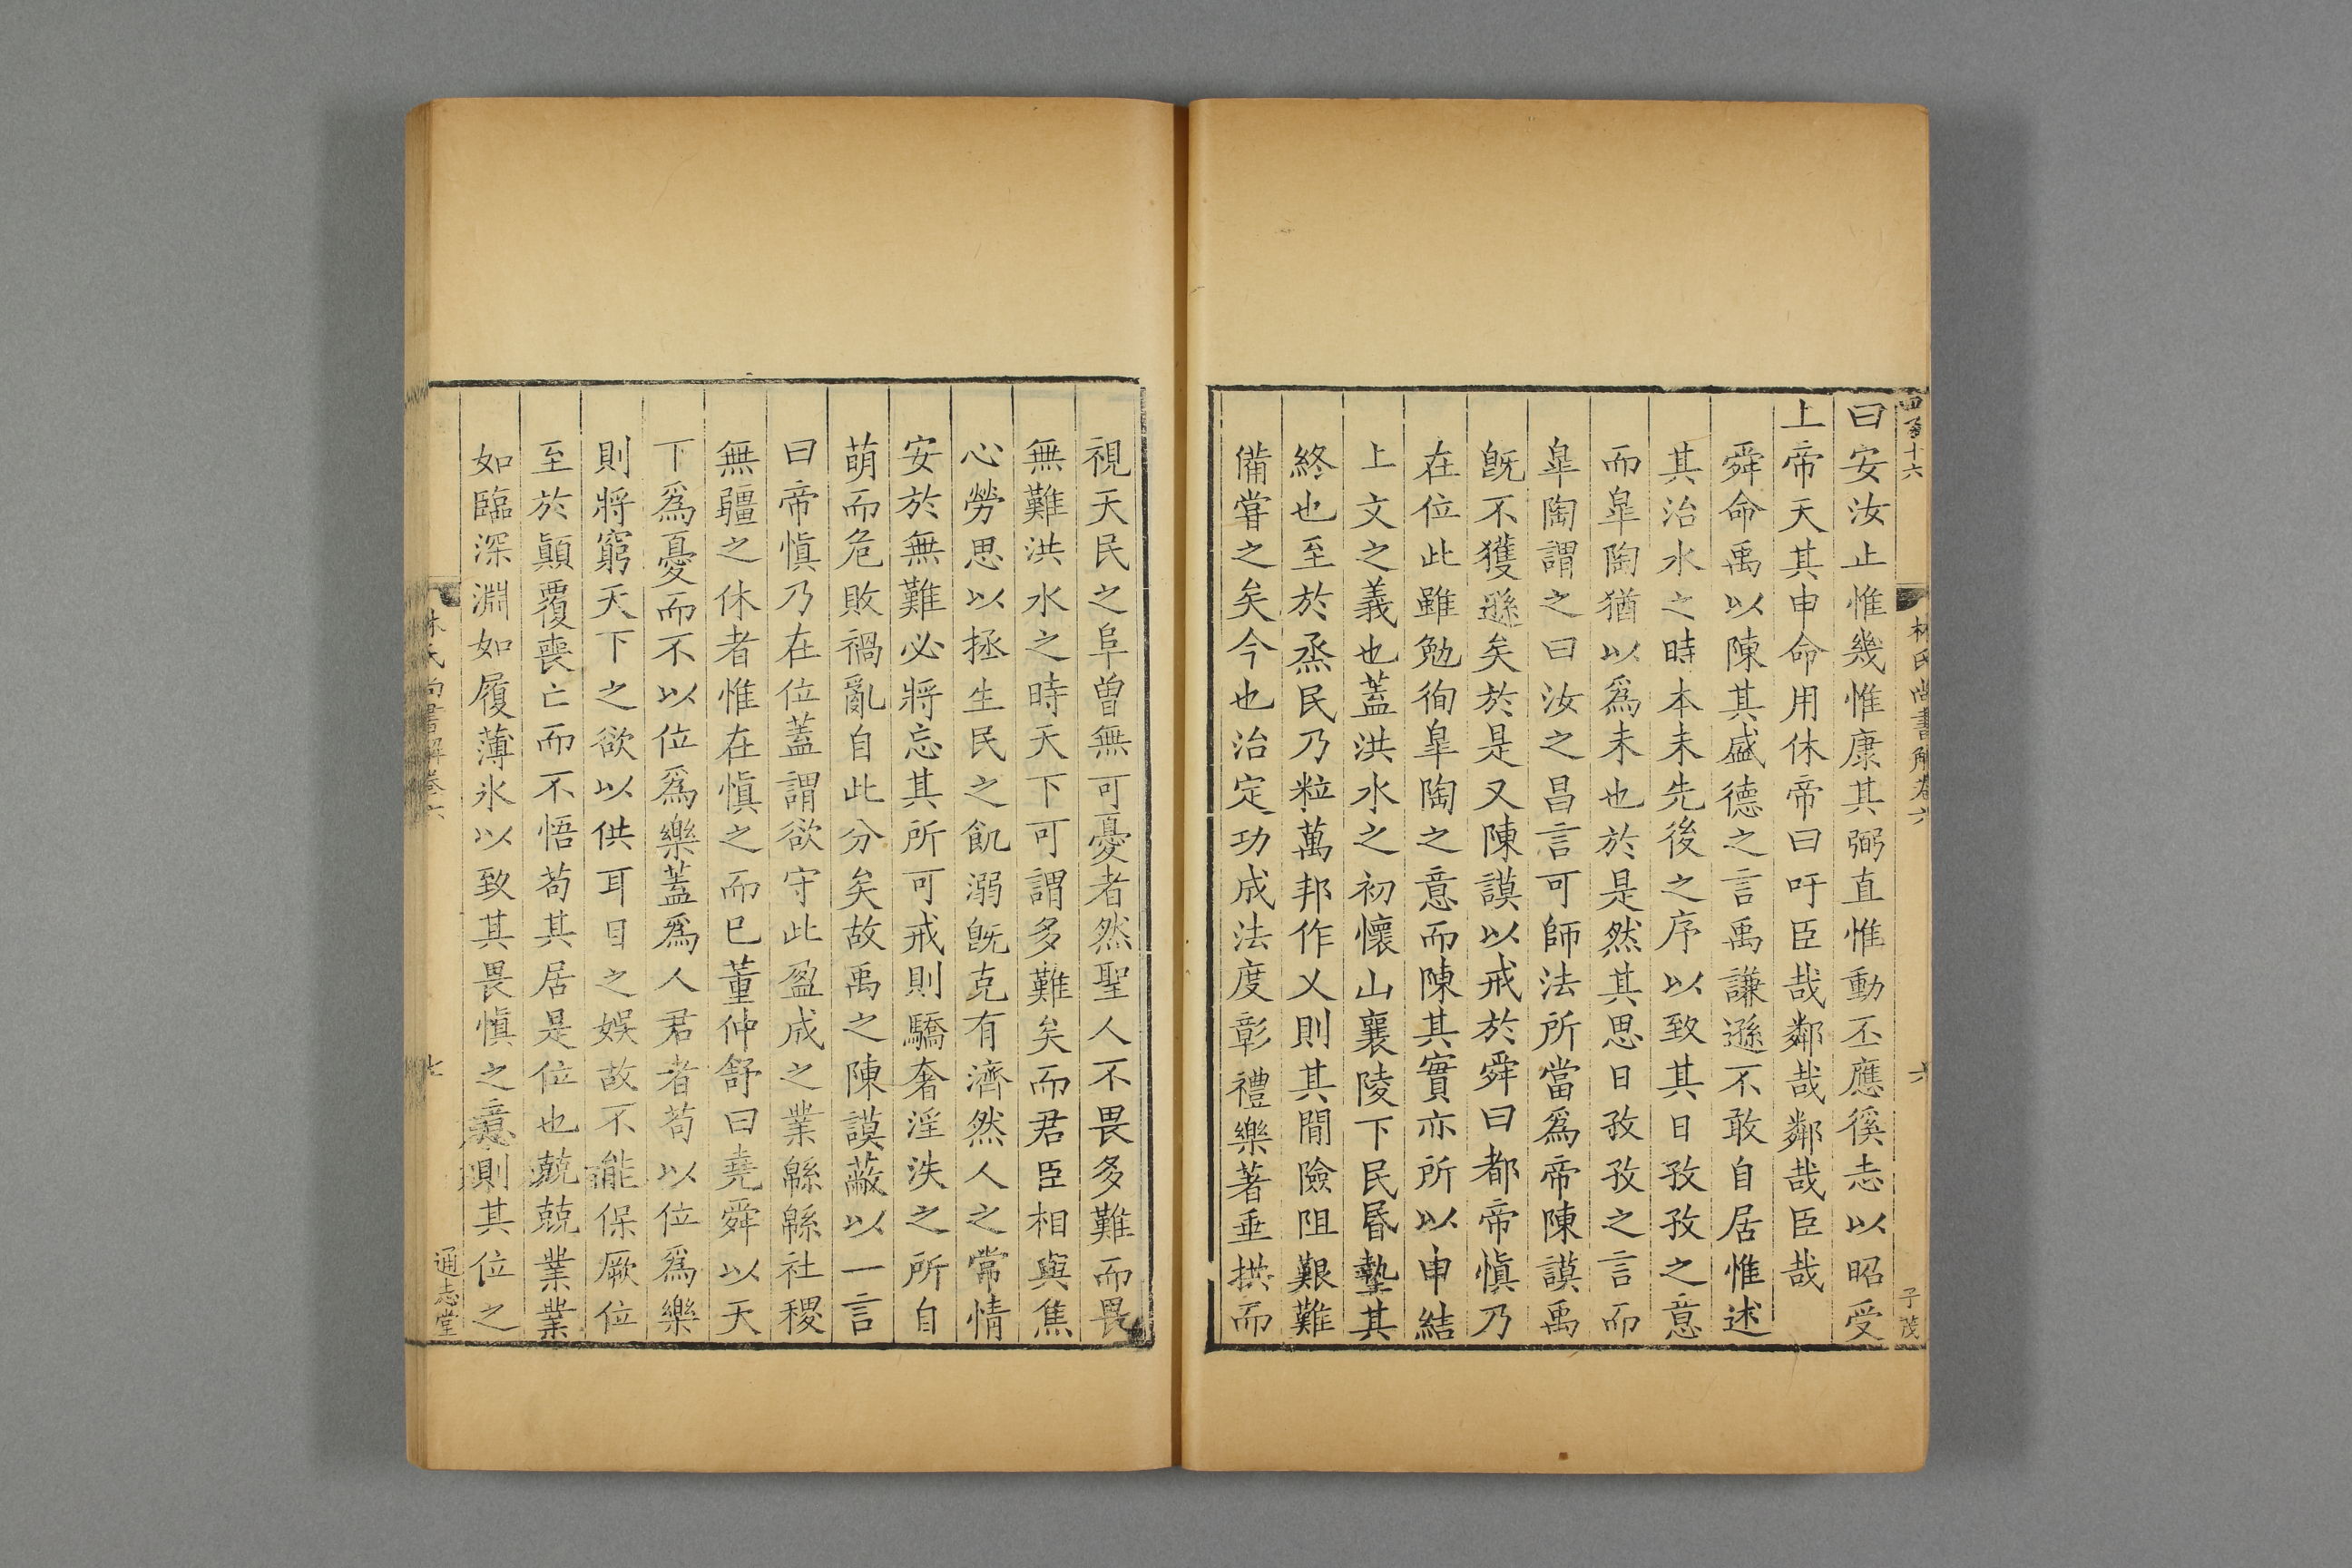 四百十六
林氏尚書解卷六
六
子茂
曰安汝止惟幾惟康其弼直惟動丕應徯志以昭受
上帝天其申命用休帝曰吁臣哉鄰哉鄰哉臣哉
舜命禹以陳其盛德之言禹謙遜不敢自居惟述
其治水之時本末先後之序以致其日孜孜之意
而臯陶猶以爲未也於是然其思日孜孜之言而
臯陶謂之曰汝之昌言可師法所當爲帝陳謨禹
旣不獲遜矣於是又陳謨以戒於舜曰都帝愼乃
在位此雖勉徇臯陶之意而陳其實亦所以申結
上文之義也蓋洪水之初懷山襄陵下民昬墊其
終也至於烝民乃粒萬邦作乂則其間險阻艱難
備嘗之矣今也治定功成法度彰禮樂著垂拱而
視天民之阜曽無可憂者然聖人不畏多難而畏
無難洪水之時天下可謂多難矣而君臣相與焦
心勞思以拯生民之飢溺旣克有濟然人之常情
安於無難必將忘其所可戒則驕奢淫泆之所自
萌而危敗禍亂自此分矣故禹之陳謨蔽以一言
曰帝愼乃在位蓋謂欲守此盈成之業緜緜社稷
無疆之休者惟在愼之而已董仲舒曰堯舜以天
下爲憂而不以位爲樂蓋爲人君者苟以位爲樂
則將窮天下之欲以供耳目之娛故不能保厥位
至於顚覆喪亡而不悟苟其居是位也兢兢業業
如臨深淵如履薄氷以致其畏愼之意則其位之
林氏尚書解卷六
七
通志堂